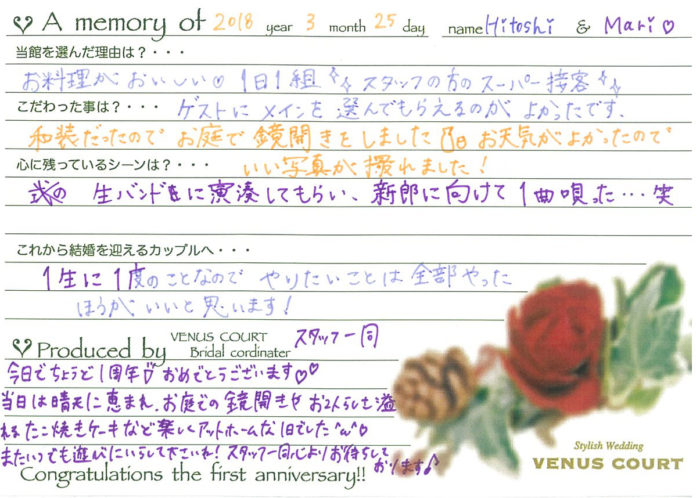 A memory of 2018 year 3 month 25 day name Hitoshi & Mari♡
当館を選んだ理由は？・・・
お料理がおいしい♡ 1日1組 スタッフの方のスーパー接客
こだわった事は？・・・ ゲストに メインを 選んでもらえるのが よかったです。
和装だったので お庭で 鏡開きをしました お天気がよかったので
心に残っているシーンは？・・・ いい写真が 撮れました！
生バンドに演湊してもらい、新郎に向けて 1曲唄った…笑
これから結婚を迎えるカップルへ・・・
1生に 1度のことなので やりたいことは 全部やった
ほうが いいと 思います！
Produced by VENUS COURT Bridal cordinater スタッフ一同
今日でちょうど1周年♡ おめでとうございます♡♡
当日は晴天に恵まれ、お庭での鏡開きや お2人らしさ溢
れる たこ焼きケーキなど 楽しくアットホームな 1日でした ^ω^♡
またいつでも遊びにいらして下さいね！ スタッフ一同心よりお待ちして
おります♪
Congratulations the first anniversary!!
Stylish Wedding
VENUS COURT